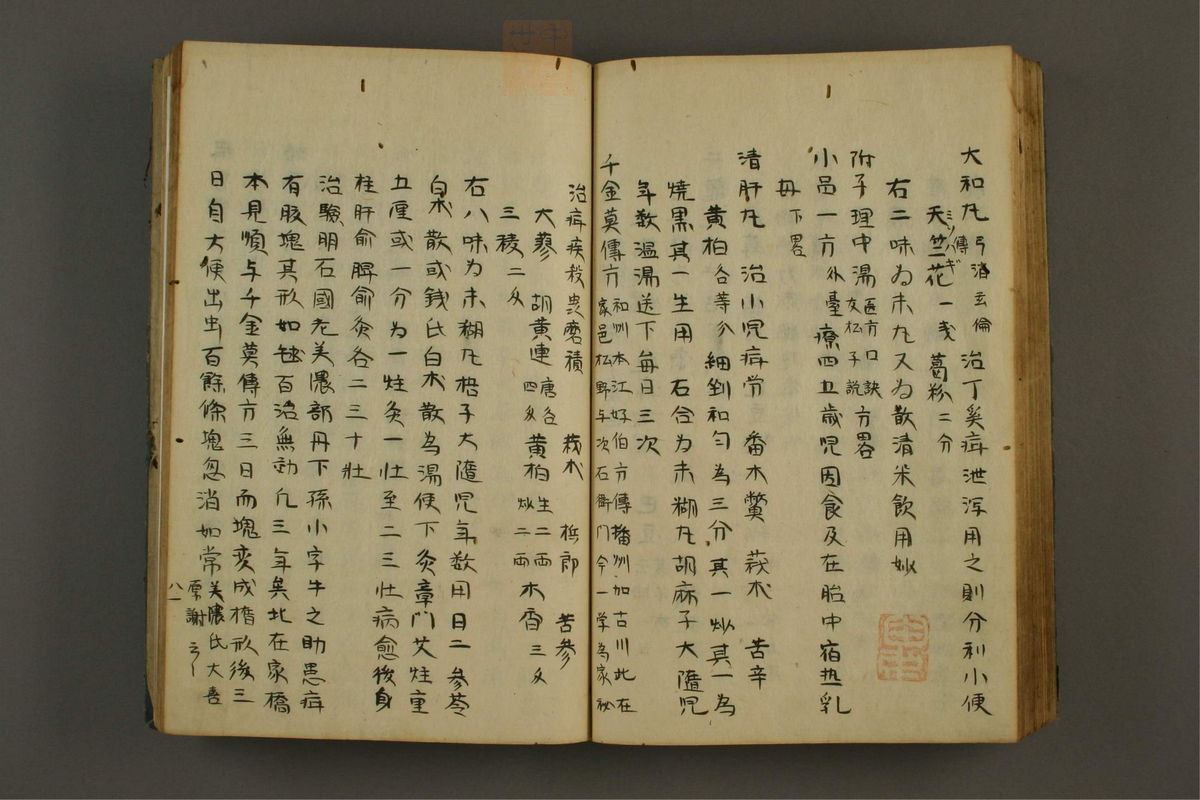 大和丸 弓削玄倫傳 治丁奚疳泄泻用之則分利小便
天竺花一戋 葛粉二分
右二味為末丸又為散清米飲用妙
附子理中湯 医方口訣 友松子説 方畧
小品一方 外臺 療四五歳児因食及在胎中宿热乳
母 下畧
清肝丸 治小児疳労 番木鱉 莪朮 苦辛
黄柏 各等分 細剉和匀為三分其一炒其一為
燒黒其一生用 右合為末糊丸胡麻子大隨児
年数温湯送下每日三次
千金莫傳方 和州本江好伯方傳播州加古川此在
家邑松野与次右衛門今一学為家秘
治疳疾殺虫磨積 莪朮 梹郎 苦參
大蓼 胡黄連 唐各四戋 黄柏 生二両 炒二両 木香三戋
三稜二戋
右八味為末糊丸梧子大隨児年数用日二 參苓
白朮散或銭氏白朮散為湯使下灸章門艾炷重
五厘或一分為一炷灸一壮至二三壮病愈後身
柱肝俞脾俞灸各二三十壮
治驗明石國老美濃部丹下孫小字牛之助患疳
有腹塊其形如毬百治無効凡三年矣北在家橋
本見順与千金莫傳方三日而塊变成楕形後三
日自大便出虫百餘條塊忽消如常 美濃氏大喜
厚謝云云
八一